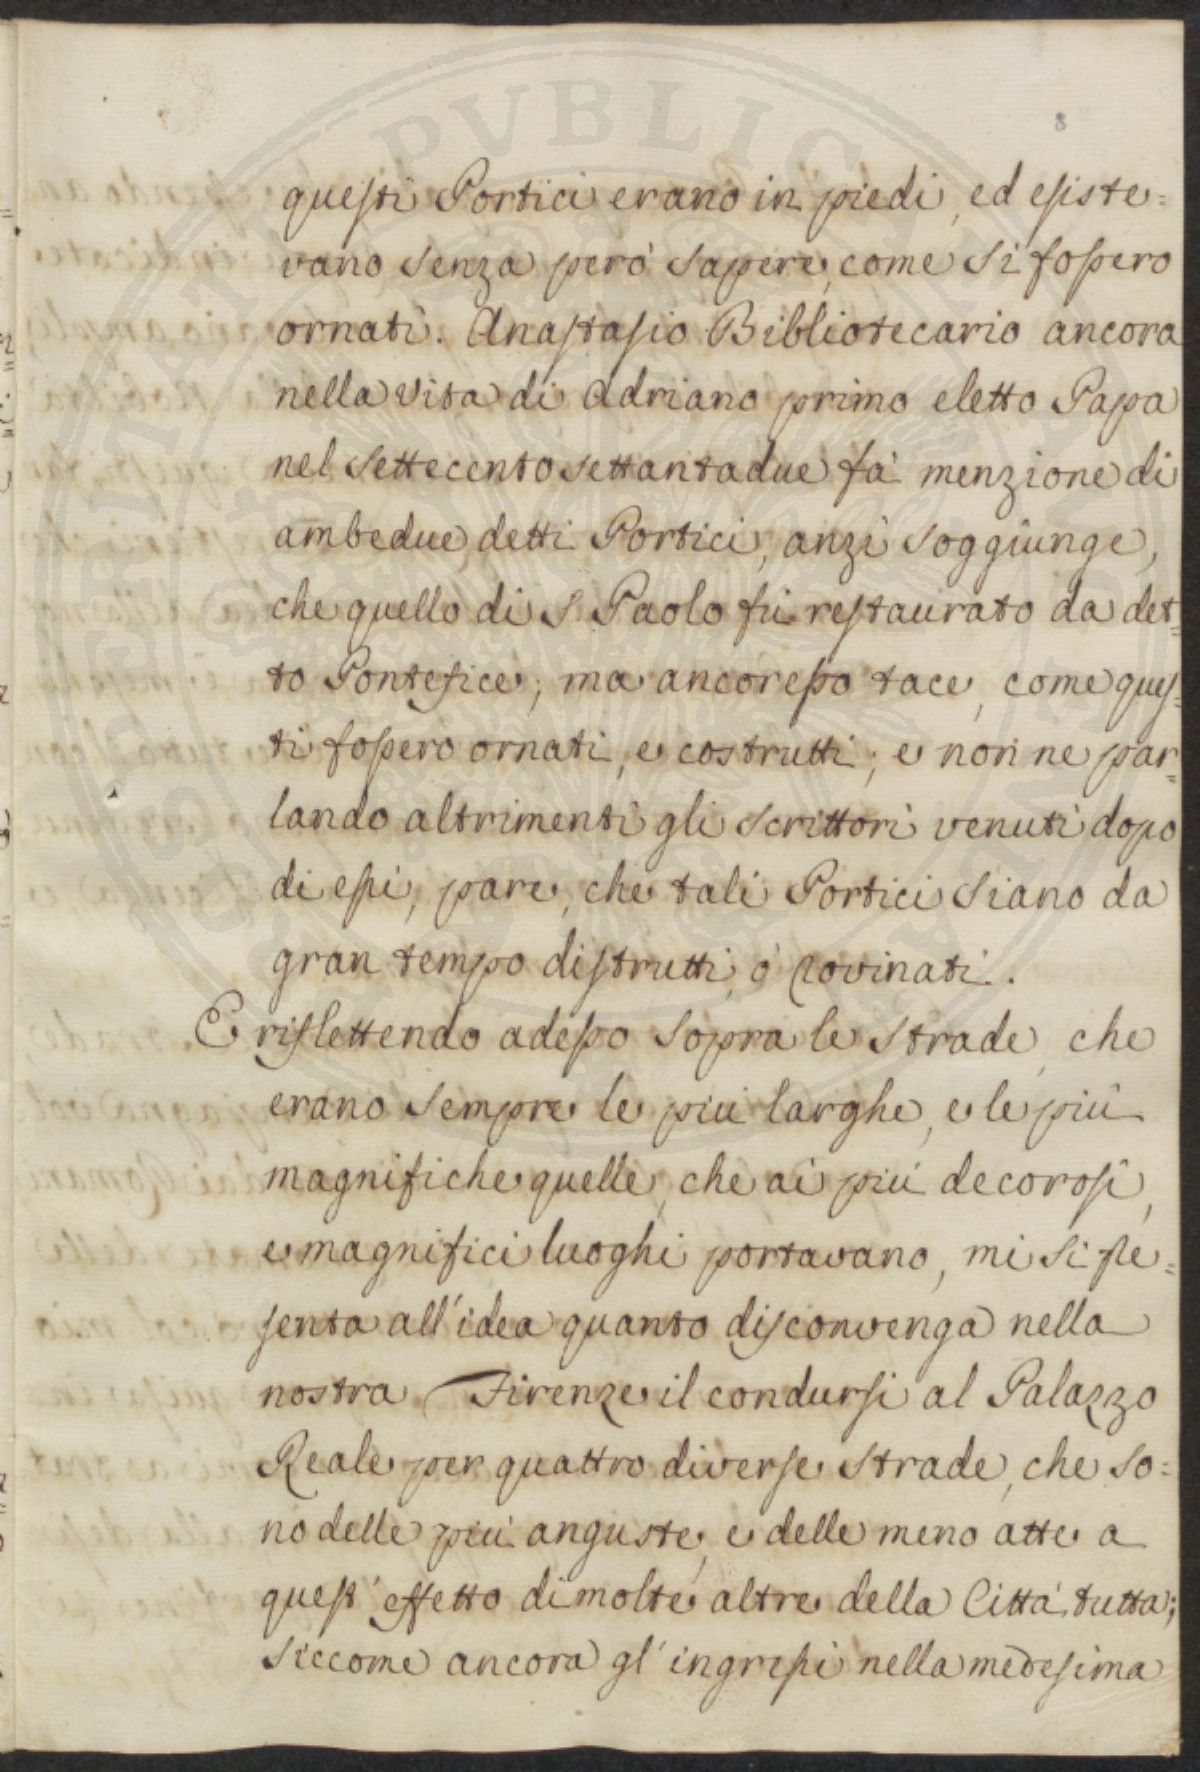 8
questi Portici erano in piedi, ed esiste=
vano senza però sapere, come si fossero
ornati. Anastasio Bibliotecario ancora
nella vita di Adriano primo eletto Papa
nel settecento settantadue fà menzione di
ambedue detti Portici, anzi soggiunge,
che quello di S. Paolo fù restaurato da det=
to Pontefice; ma ancoresso tace, come ques=
ti fossero ornati, e costrutti; e non ne par=
lando altrimenti gli scrittori venuti dopo
di essi, pare, che tali Portici siano da
gran tempo distrutti, ò rovinati.
E riflettendo adesso sopra le strade, che
erano sempre le più larghe, e le più
magnifiche quelle, che ai più decorosi,
e magnifici luoghi portavano, mi si
senta all'idea quanto disconvenga nella
nostra Firenze il condursi al Palazzo
Reale per quattro diverse strade, che so=
no delle più anguste, e delle meno atte a
quest'effetto di molte altre della Città tutta;
siccome ancora gl'ingressi nella medesima